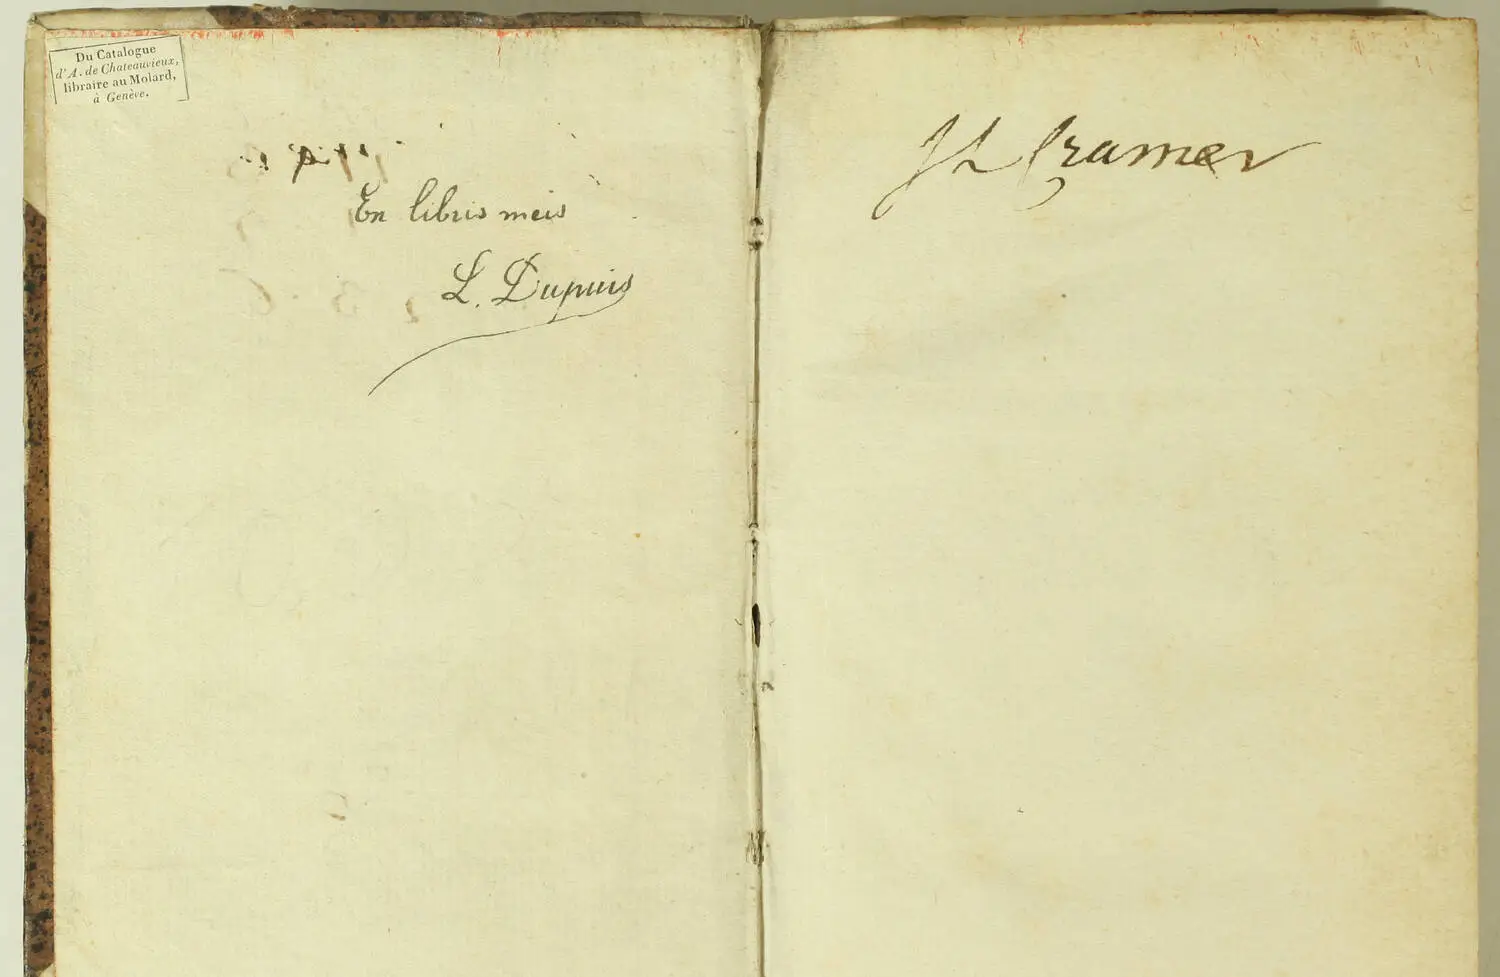 Du Catalogue
d'A. de Chateauvieux,
libraire au Molard,
à Genève.
En libris meis
L. Dupuis
JL Cramer